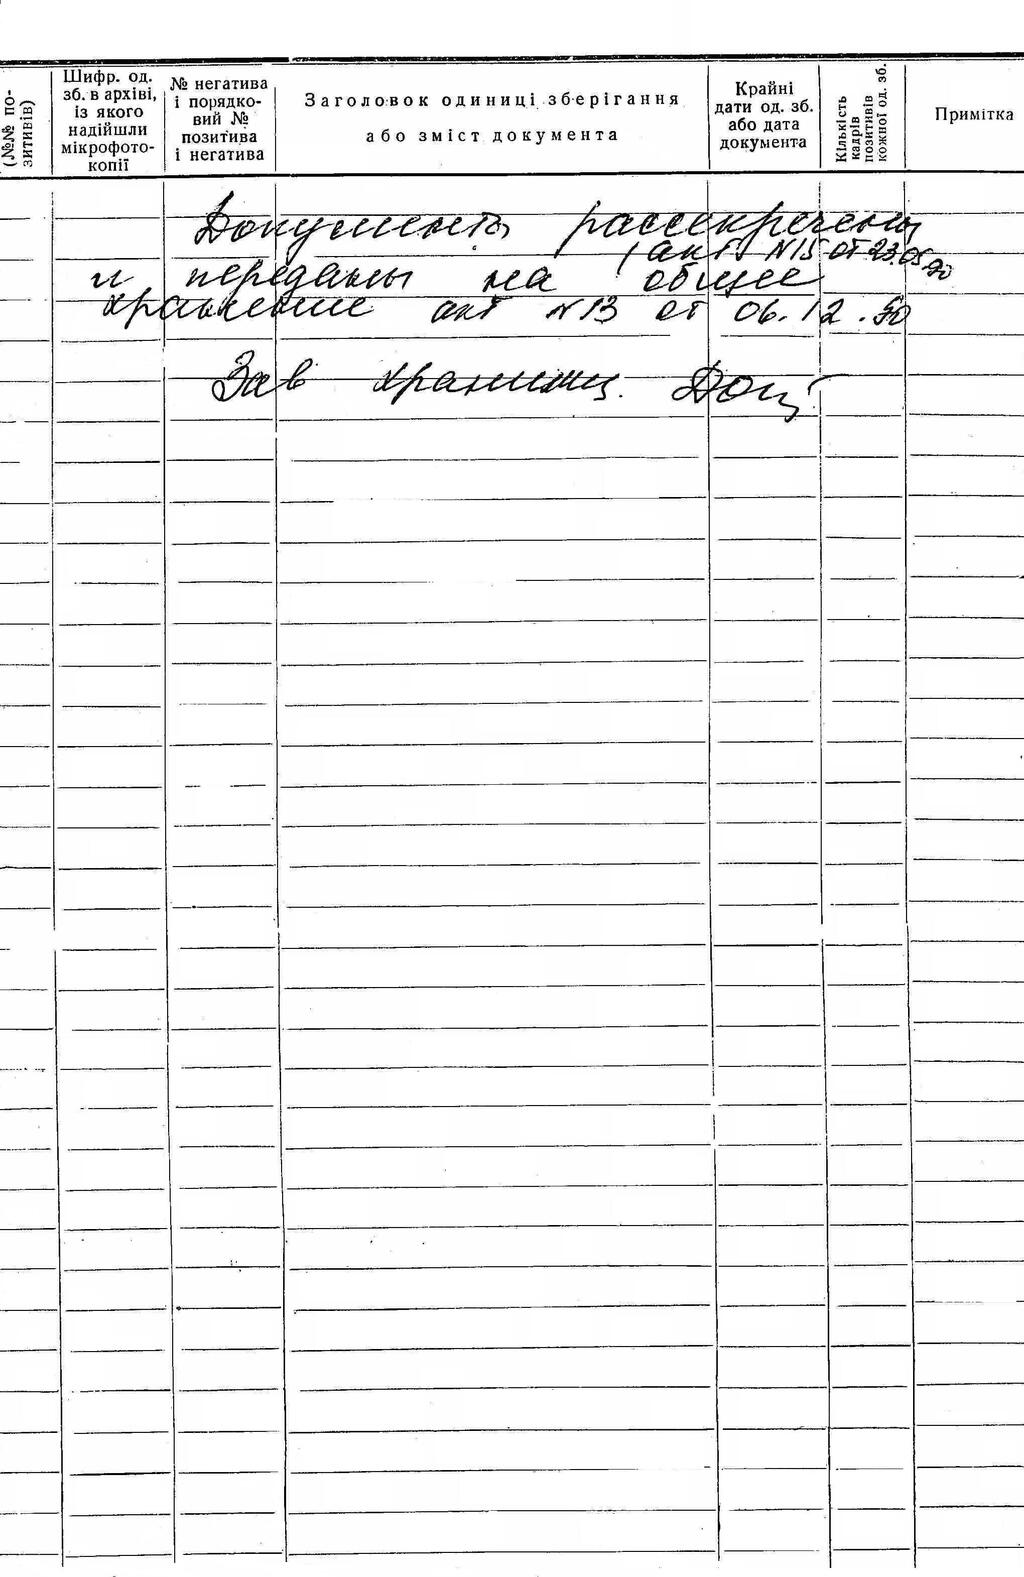 (№№ по-
зитивів)
Шифр. од.
зб. в архіві,
із якого
надійшли
мікрофото-
копії
№ негатива
і порядко-
вий №
позитива
і негатива
Заголовок одиниці зберігання
або зміст документа
Крайні
дати од. зб.
або дата
документа
Кількість
кадрів
позитивів
кожної од. зб.
Примітка
Документы рассекречены
(акт N15 от 23.05
90
и переданы на общее
хранение акт N13 от 06.12.90
Зав хранилищ.